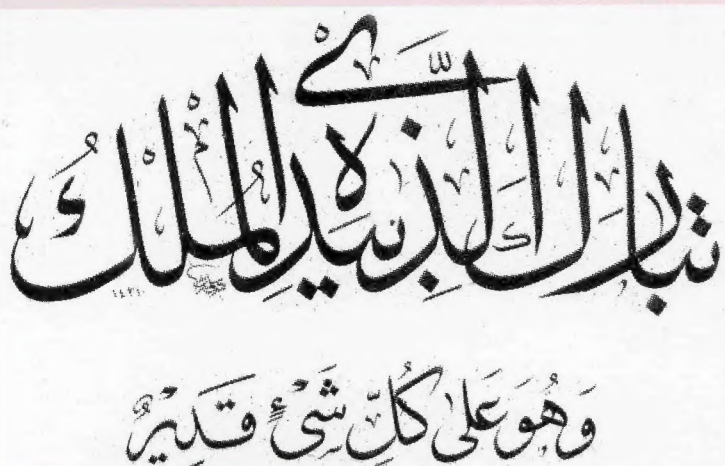 تبارك الذي بيده الملك
١٤٣١
وَهُوَ عَلٰى كُلِّ شَيْءٍ قَدِيْرٌ